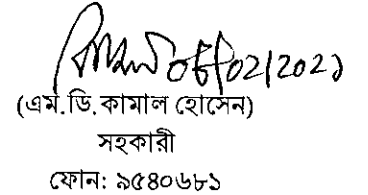 02/2021
(এম.ডি.কামাল হোসেন)
সহকারী
ফোন: ৯৫৪০৬৮১